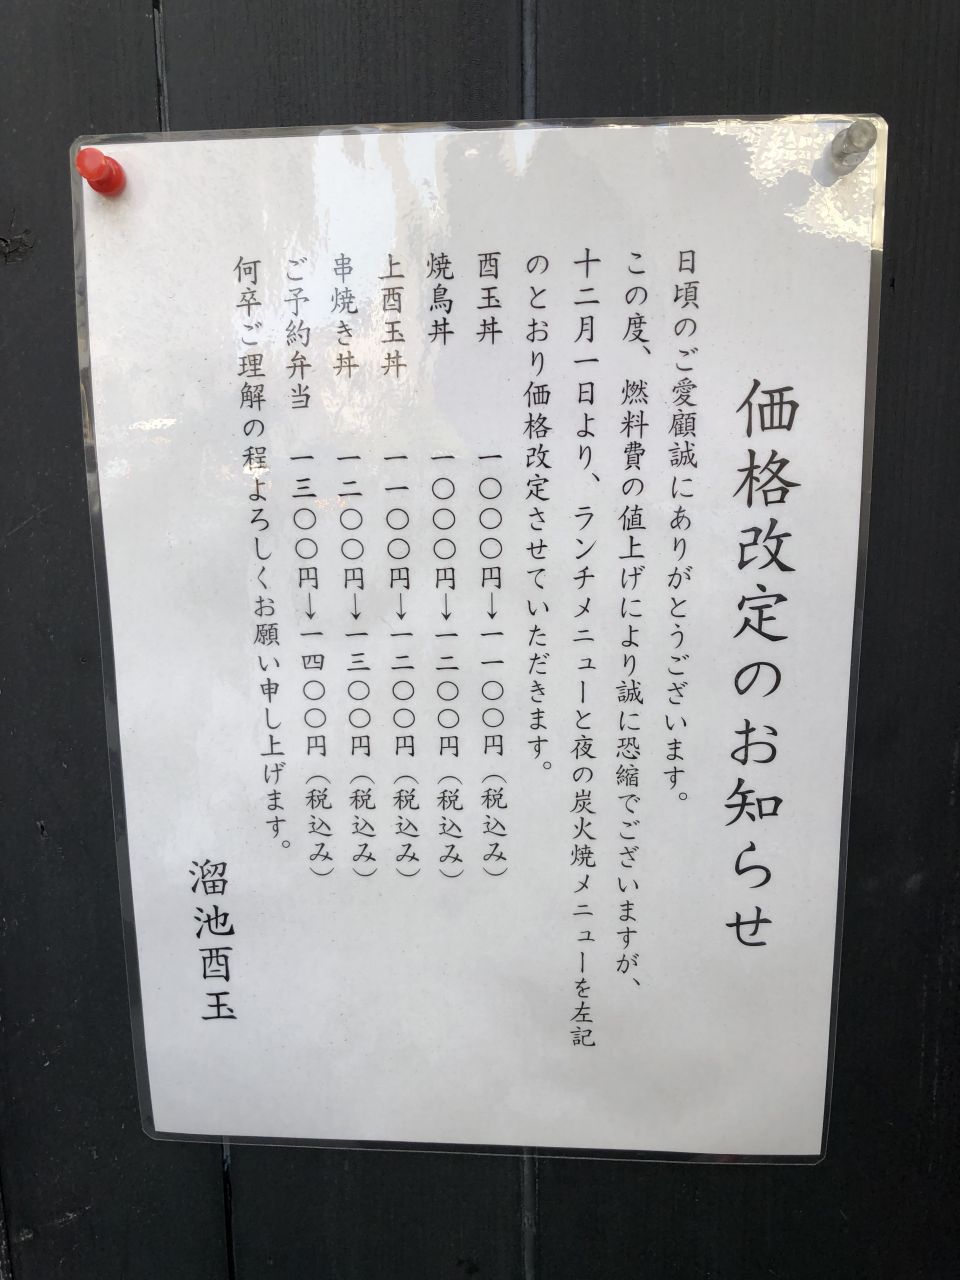 価格改定のお知らせ
日頃のご愛顧誠にありがとうございます。
この度、燃料費の値上げにより誠に恐縮でございますが、
十二月一日より、ランチメニューと夜の炭火焼メニューを左記
のとおり価格改定させていただきます。
酉玉丼 一〇〇〇円→一一〇〇円（税込み）
焼鳥丼 一〇〇〇円→一二〇〇円（税込み）
上酉玉丼 一一〇〇円→一二〇〇円（税込み）
串焼き丼 一二〇〇円→一三〇〇円（税込み）
ご予約弁当 一三〇〇円→一四〇〇円（税込み）
何卒ご理解の程よろしくお願い申し上げます。
溜池酉玉